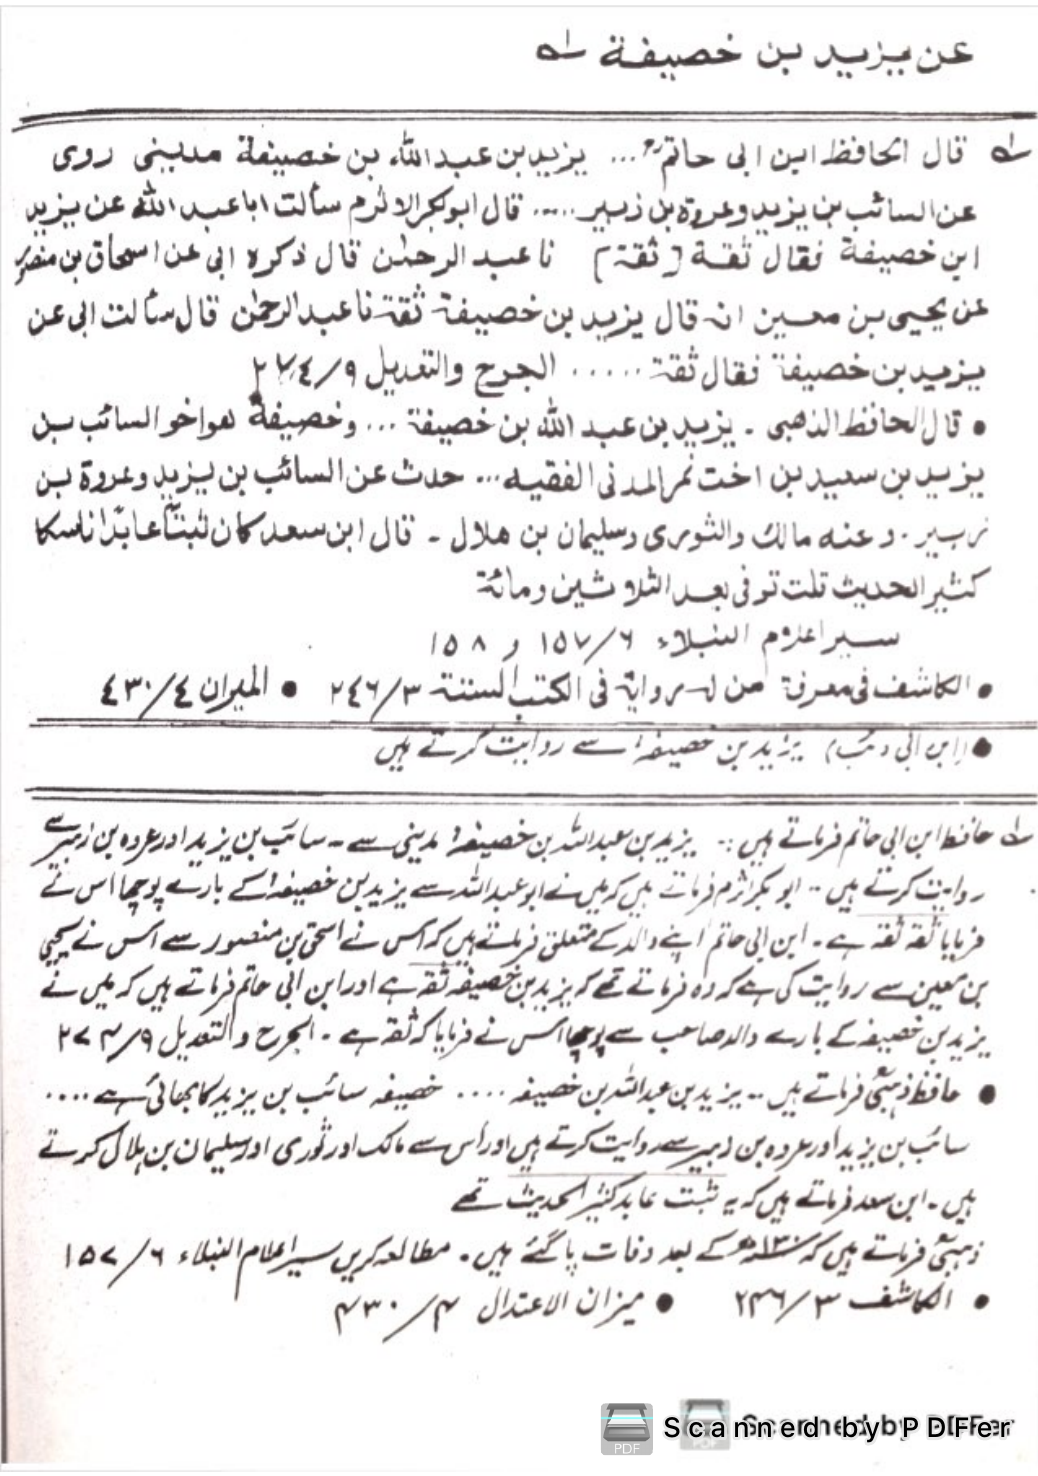 عن یزید بن خصیفة لہ
لہ قال الحافظ ابن ابی حاتمؒ ... یزید بن عبد اللہ بن خصیفة مدینی روی
عن السائب بن یزید وعروة بن زبیر ..... قال ابوبکر الاثرم سألت ابا عبد اللہ عن یزید
ابن خصیفة فقال ثقة [ثقة] نا عبد الرحمٰن قال ذکره ابی عن اسحاق بن منصور
عن یحیی بن معین انه قال یزید بن خصیفة ثقة نا عبد الرحمٰن قال سألت ابی عن
یزید بن خصیفة فقال ثقة ..... الجرح والتعدیل ٩/٢٧٤
• قال الحافظ الذهبی ۔ یزید بن عبد اللہ بن خصیفة ... وخصیفة هو اخو السائب بن
یزید بن سعید بن اخت نمر المدنی الفقیه ... حدث عن السائب بن یزید وعروة بن
زبیر ۔ وعنه مالك والثوری وسلیمان بن هلال ۔ قال ابن سعد کان ثبتاً عابدًا ناسکا
کثیر الحدیث قلت توفی بعد الثلاثین ومائة
سیر اعلام النبلاء ٦/١٥٧ و ١٥٨
• الکاشف فی معرفة من له روایة فی الکتب الستة ٣/٢٤٦ • المیزان ٤/٤٣٠
• (ابن ابی ) یزید بن خصیفہ سے روایت کرتے ہیں
لہ حافظ ابن ابی حاتم فرماتے ہیں :۔ یزید بن عبداللہ بن خصیفہ مدینی سے ۔ سائب بن یزید اور عروہ بن زبیر سے
روایت کرتے ہیں .. ابوبکر اثرم فرماتے ہیں کہ میں نے ابو عبداللہ سے یزید بن خصیفہ کے بارے پوچھا اس نے
فرمایا ثقہ ثقہ ہے ۔ ابن ابی حاتم اپنے والد کے متعلق فرماتے ہیں کہ اس نے اسحٰق بن منصور سے اس نے یحیی
بن معین سے روایت کی ہے کہ وہ فرماتے تھے کہ یزید بن خصیفہ ثقہ ہے اور ابن ابی حاتم فرماتے ہیں کہ میں نے
یزید بن خصیفہ کے بارے والد صاحب سے پوچھا اس نے فرمایا کہ ثقہ ہے ۔ الجرح والتعدیل ۹/۲۷۴
• حافظ ذہبیؒ فرماتے ہیں .. یزید بن عبداللہ بن خصیفہ .... خصیفہ سائب بن یزید کا بھائی ہے ....
سائب بن یزید اور عروہ بن زبیر سے روایت کرتے ہیں اور اس سے مالک اور ثوری اور سلیمان بن ہلال کرتے
ہیں ۔ ابن سعد فرماتے ہیں کہ یہ ثبت عابد کثیر الحدیث تھے
ذہبیؒ فرماتے ہیں کہ ۱۳۰ھ کے بعد وفات پا گئے ہیں ۔ مطالعہ کریں سیر اعلام النبلاء ۶/۱۵۷
• الکاشف ۳/۲۴۶ • میزان الاعتدال ۴/۴۳۰
Scanned by PDFer
Scanned by PDFer
PDF
PDF